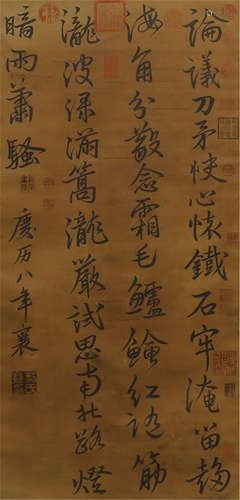 論議刀矛快心懷鐵石牢淹留趨
海角分散念霜毛鱸鱠紅隨筯
瀧波淥滿篙瀧嚴試思南北路燈
暗雨蕭騷 慶历八年襄